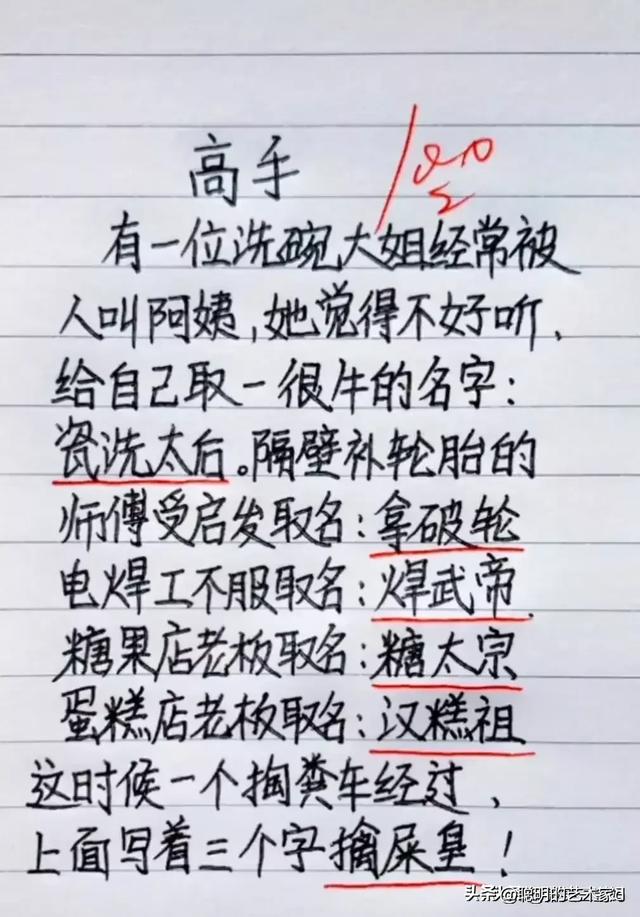 高手
100
有一位洗碗大姐经常被
人叫阿姨,她觉得不好听,
给自己取一很牛的名字:
瓷洗太后。隔壁补轮胎的
师傅受启发取名:拿破轮
电焊工不服取名:焊武帝.
糖果店老板取名:糖太宗
蛋糕店老板取名:汉糕祖
这时候一个掏粪车经过,
上面写着三个字擒屎皇!
头条@聪明的艺术家j